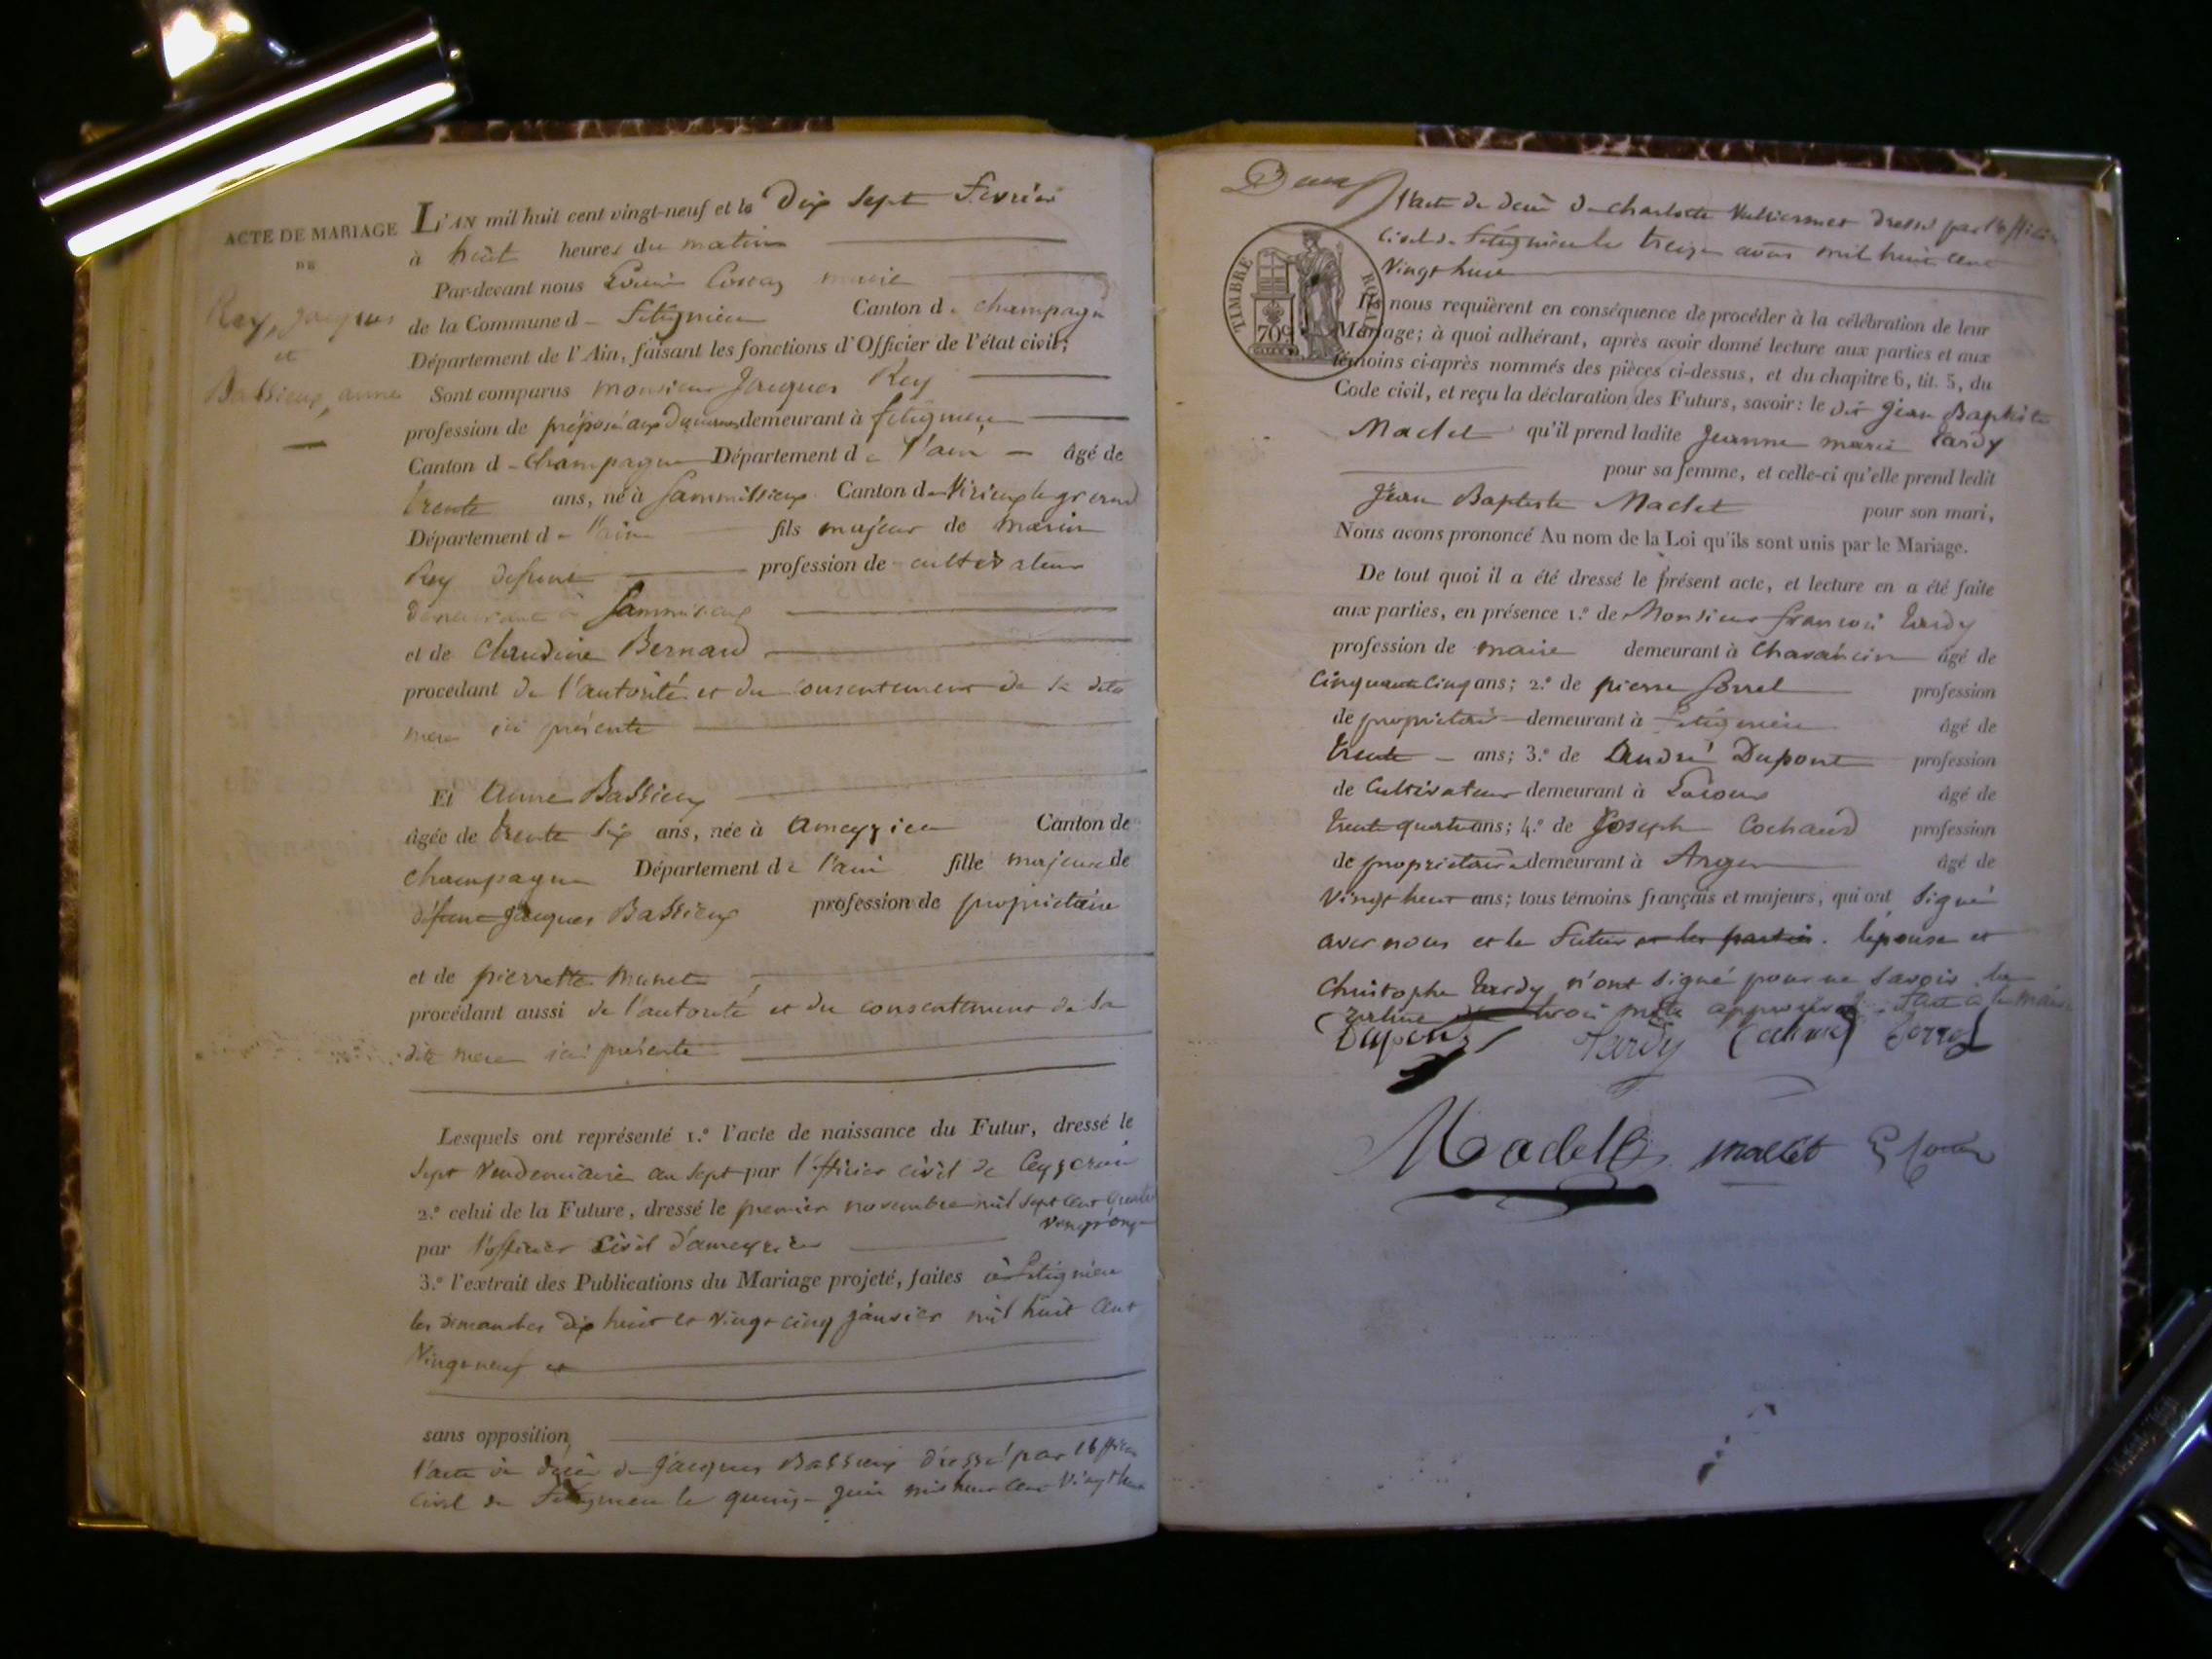 ACTE DE MARIAGE
DE
Rey, Jacques
et
Bassieux, anne
L'AN mil huit cent vingt-neuf et le Dix Sept Fevrier
à huit heures du matin
Par-devant nous maire
de la Commune d Songieu Canton d champagne
Département de l'Ain, faisant les fonctions d'Officier de l'état civil;
Sont comparus monsieur Jacques Rey
profession de préposé aux Douannes demeurant à
Canton d champagne Département de l'ain âgé de
trente ans, né à Canton de Virieux le grand
Département de l'ain fils majeur de marin
Rey defunt profession de cultivateur
demeurant à
et de Claudine Bernard
procédant de l'autorité et du consentement de sa dite
mere ici présente
Et Anne Bassieux
âgée de trente Six ans, née à ameyzieu Canton de
champagne Département de l'ain fille majeure de
défunt Jacques Bassieux profession de propriétaire
et de pierrette Munet
procédant aussi de l'autorité et du consentement de sa
dite mere ici présente
Lesquels ont représenté 1.º l'acte de naissance du Futur, dressé le
Sept Vendemiaire an Sept par l'officier civil de Ceyzerieu
2.º celui de la Future, dressé le premier novembre mil Sept cent quatre
vingt onze
par l'officier Civil d'ameyzieu
3.º l'extrait des Publications du Mariage projeté, faites à
les dimanches dix huit et vingt cinq janvier mil huit cent
Vingt neuf et
sans opposition
l'acte de décès de Jacques Bassieux dressé par l'officier
civil de le quinze juin mil huit cent Vingt huit
Deux
l'acte de décès de charlotte Vulliermet dressé par l'officier
civil de le treize août mil huit cent
Vingt huit
TIMBRE ROYAL
70c
Ils nous requièrent en conséquence de procéder à la célébration de leur
Mariage; à quoi adhérant, après avoir donné lecture aux parties et aux
témoins ci-après nommés des pièces ci-dessus, et du chapitre 6, tit. 5, du
Code civil, et reçu la déclaration des Futurs, savoir: le dit Jean Baptiste
Maclet qu'il prend ladite Jeanne marie Tardy
pour sa femme, et celle-ci qu'elle prend ledit
Jean Baptiste Maclet pour son mari,
Nous avons prononcé Au nom de la Loi qu'ils sont unis par le Mariage.
De tout quoi il a été dressé le présent acte, et lecture en a été faite
aux parties, en présence 1.º de Monsieur françois Tardy
profession de maire demeurant à Chavornin âgé de
Cinquante Cinq ans; 2.º de pierre Sorrel profession
de propriétaire demeurant à âgé de
trente ans; 3.º de André Dupont profession
de Cultivateur demeurant à âgé de
trente quatre ans; 4.º de Joseph Cochaud profession
de propriétaire demeurant à âgé de
Vingt huit ans; tous témoins français et majeurs, qui ont Signé
avec nous et le Futur et les parties. l'épouse et
Christophe Tardy n'ont Signé pour ne Savoir
trois mots approuvés fait à la mairie
Dupont Tardy Cochaud Sorrel
Maclet